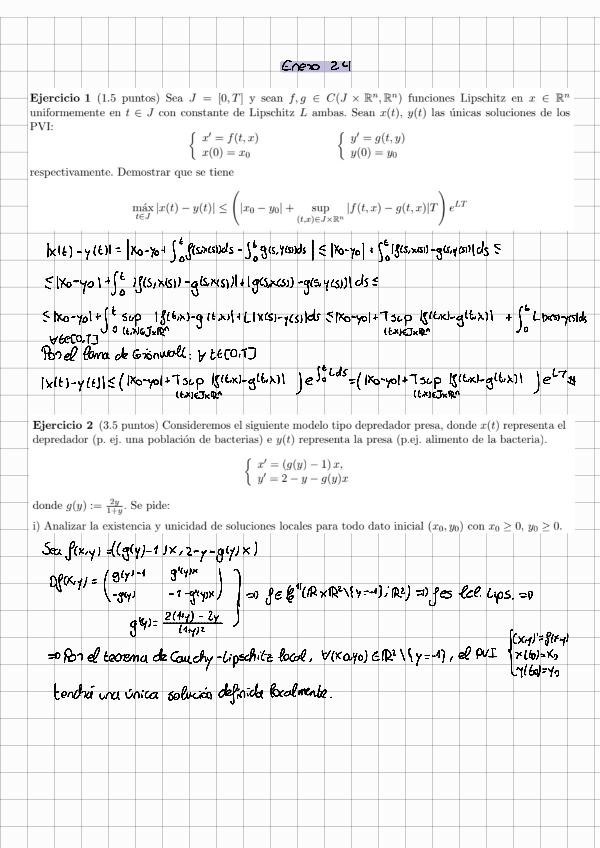 Enero 24
Ejercicio 1 (1.5 puntos) Sea J = [0, T] y sean f, g ∈ C(J × ℝⁿ, ℝⁿ) funciones Lipschitz en x ∈ ℝⁿ
uniformemente en t ∈ J con constante de Lipschitz L ambas. Sean x(t), y(t) las únicas soluciones de los
PVI:
{ x′ = f(t, x) { y′ = g(t, y)
x(0) = x₀ y(0) = y₀
respectivamente. Demostrar que se tiene
máx_{t∈J} |x(t) − y(t)| ≤ ( |x₀ − y₀| + sup_{(t,x)∈J×ℝⁿ} |f(t, x) − g(t, x)|T ) e^{LT}
|x(t) - y(t)| = | x₀ - y₀ + ∫₀ᵗ f(s,x(s))ds - ∫₀ᵗ g(s,y(s))ds | ≤ |x₀-y₀| + ∫₀ᵗ |f(s,x(s)) - g(s,y(s))| ds ≤
≤ |x₀-y₀| + ∫₀ᵗ |f(s,x(s)) - g(s,x(s))| + |g(s,x(s)) - g(s,y(s))| ds ≤
≤ |x₀-y₀| + ∫₀ᵗ sup_{(t,x)∈J×ℝⁿ} |f(t,x) - g(t,x)| + L|x(s)-y(s)| ds ≤ |x₀-y₀| + T sup_{(t,x)∈J×ℝⁿ} |f(t,x)-g(t,x)| + ∫₀ᵗ L|x(s)-y(s)|ds
∀t∈[0,T]
Por el lema de Grönwall: ∀ t∈[0,T]
|x(t) - y(t)| ≤ ( |x₀-y₀| + T sup_{(t,x)∈J×ℝⁿ} |f(t,x)-g(t,x)| ) e^{∫₀ᵗ L ds} = ( |x₀-y₀| + T sup_{(t,x)∈J×ℝⁿ} |f(t,x)-g(t,x)| ) e^{LT} #
Ejercicio 2 (3.5 puntos) Consideremos el siguiente modelo tipo depredador presa, donde x(t) representa el
depredador (p. ej. una población de bacterias) e y(t) representa la presa (p.ej. alimento de la bacteria).
{ x′ = (g(y) − 1) x,
y′ = 2 − y − g(y)x
donde g(y) := 2y/(1+y). Se pide:
i) Analizar la existencia y unicidad de soluciones locales para todo dato inicial (x₀, y₀) con x₀ ≥ 0, y₀ ≥ 0.
Sea f(x,y) = ((g(y)-1)x, 2-y-g(y)x)
Df(x,y) = ( g(y)-1 g'(y)x
-g(y) -1-g'(y)x ) ⇒ f∈ℂ¹(ℝ×ℝ²\{y=-1}; ℝ²) ⇒ f es lcl. Lips. ⇒
g'(y) = (2(1+y) - 2y)/(1+y)²
⇒ Por el teorema de Cauchy-Lipschitz local, ∀(x₀,y₀)∈ℝ²\{y=-1}, el PVI { (x,y)'=f(x,y)
x(t₀)=x₀
y(t₀)=y₀
tendrá una única solución definida localmente.